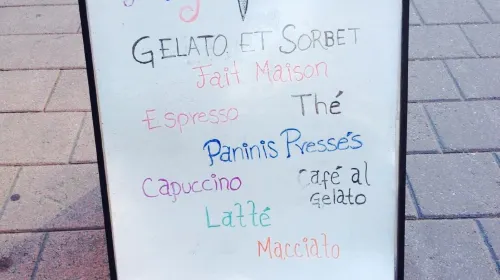 GELATO ET SORBET
Fait Maison
Espresso Thé
Paninis Pressés
Capuccino Café al
Gelato
Latté
Macciato